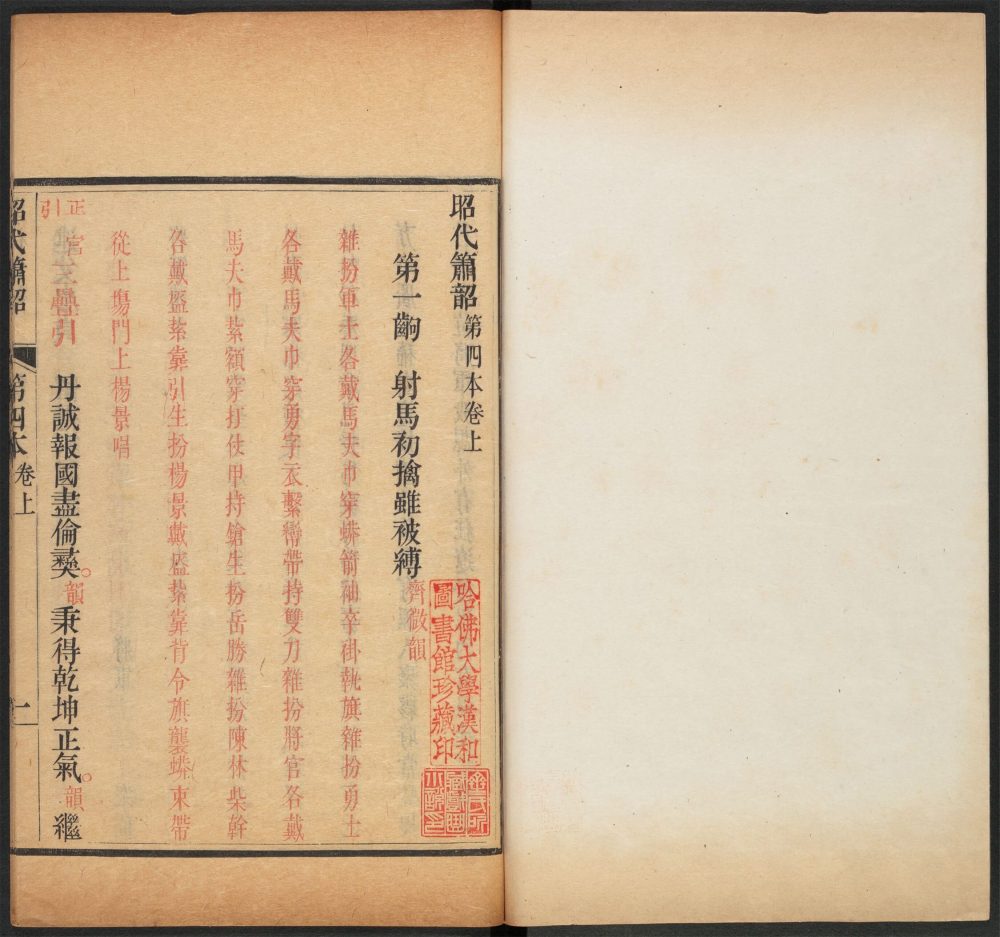 昭代簫韶第四本卷上
哈佛大學漢和
圖書館珍藏印
第一齣 射馬初擒雖被縛 齊微韻
雜扮軍士各戴馬夫巾穿蟒箭袖幸掛執旗雜扮勇士
各戴馬夫巾穿勇字衣繫轡帶持雙刀雜扮將官各戴
馬夫巾紮額穿打仗甲持鎗生扮岳勝雜扮陳林柴幹
各戴盔紮靠引生扮楊景戴盔紮靠背令旗襲蟒束帶
從上場門上楊景唱
正宮
引 三疊引 丹誠報國盡倫彞韻 秉得乾坤正氣韻 繼
昭代簫韶 第四本卷上 一